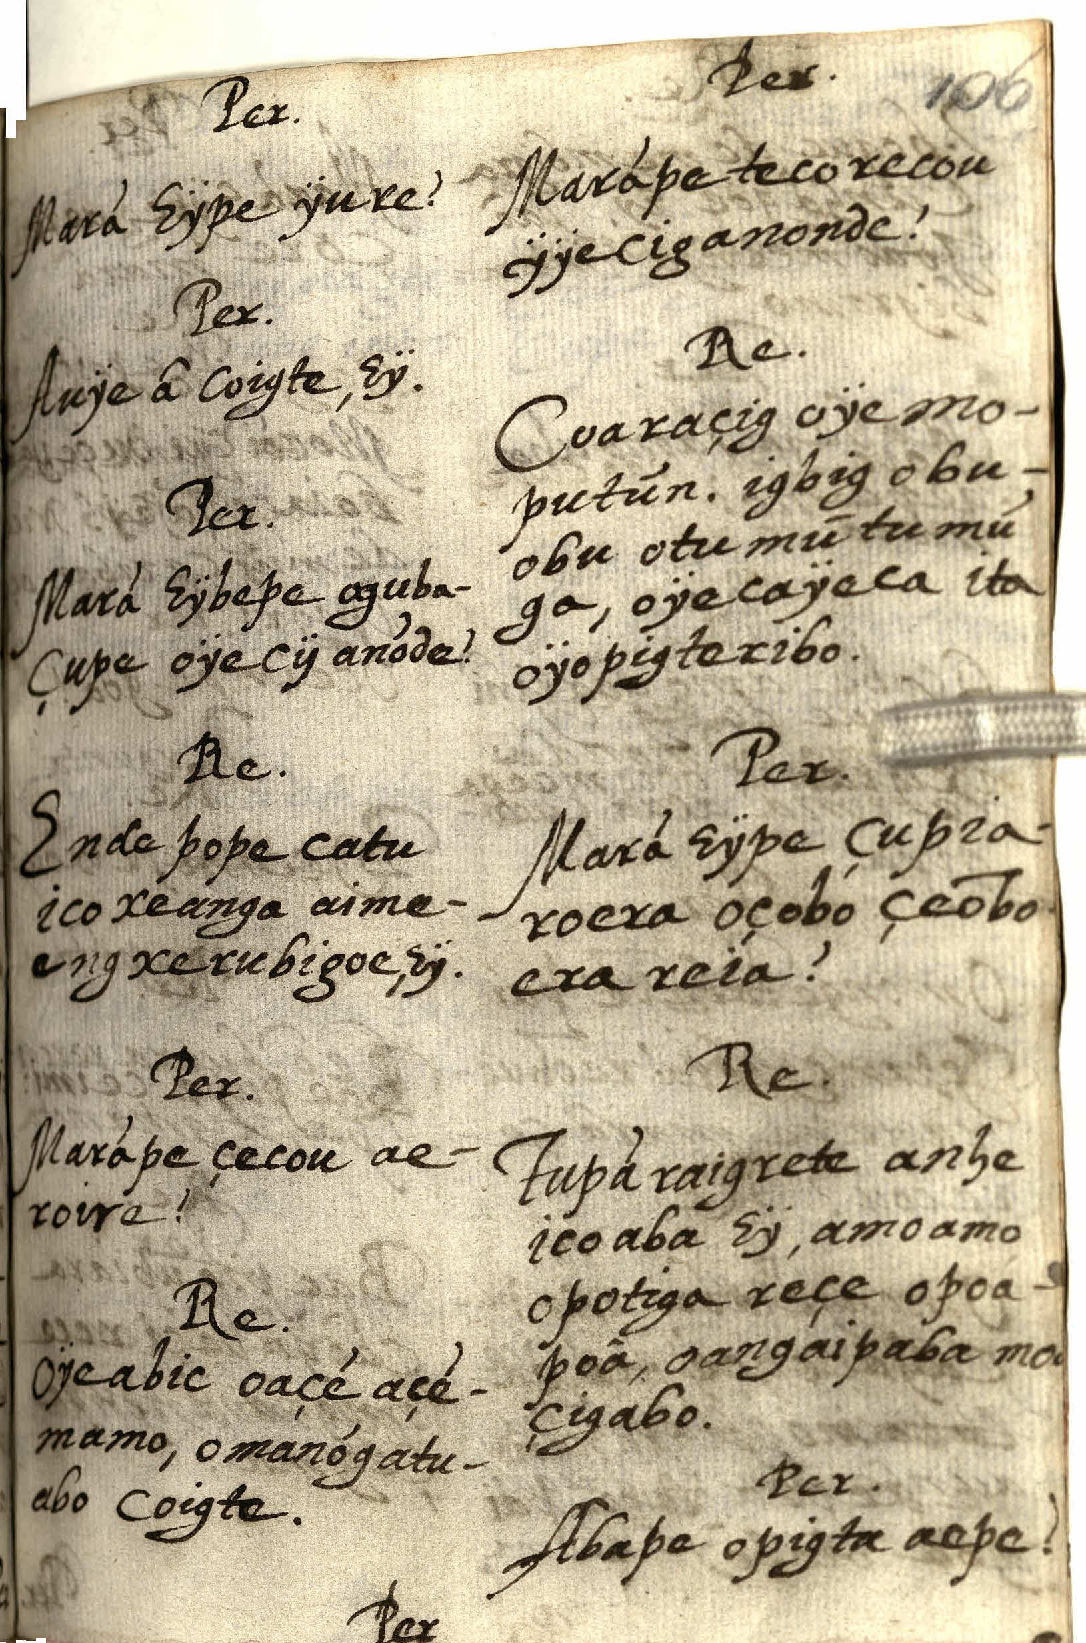 106
Per.
Mará Eÿpe ÿure?
Per.
Auÿe â Coigte, Eÿ.
Per.
Mará Eÿbepe oguba-
çupe oÿecÿ anõde?
Re.
Ende pope catu
ico xeanga aime-
eng xerubigoe, Eÿ.
Per.
Marápe çecou ae-
roire?
Re.
Oÿeabic oaçé açé-
mamo, omanógatu-
abo Coigte.
Per
Per.
Marápe teco recou
ÿÿeciganonde?
Re.
Coaraçig oÿemo-
putũn. igbig obu-
obu otumũtumũ
ga, oÿecaÿeca ita
oÿopigteribo.
Per.
Mará Eÿpe çupia-
roera oçobó çeõbo-
era reia?
Re.
Tupã raigrete anhe
ico aba Eÿ, amoamo
opotiga reçe opoá-
poâ, oangaipaba mo
çigabo.
Per.
Abape opigta aepe?